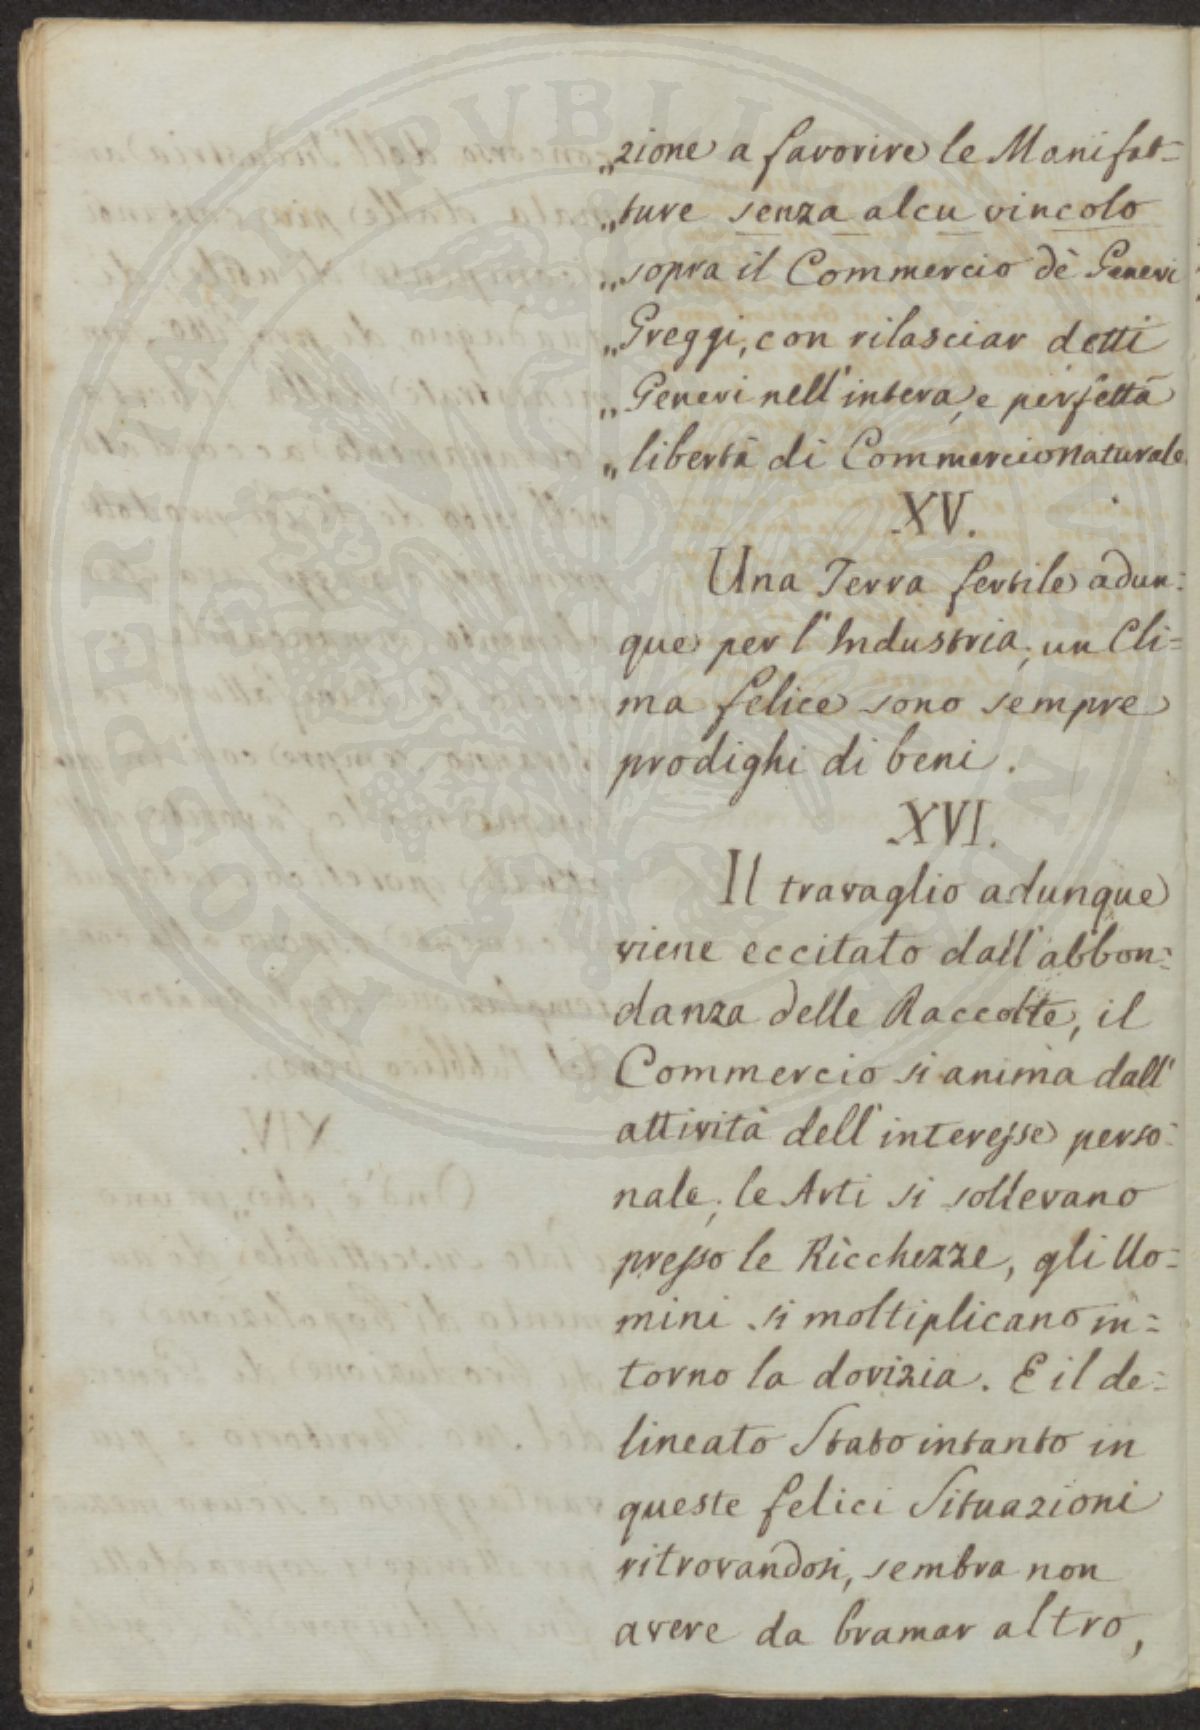 „zione a favorire le Manifat=
„ture senza alcu vincolo
„sopra il Commercio dè Generi
„Greggi, con rilasciar detti
„Generi nell'intera, e perfetta
„libertà di Commercio naturale.
XV.
Una Terra fertile adun=
que per l'Industria, un Cli=
ma felice sono sempre
prodighi di beni.
XVI.
Il travaglio adunque
viene eccitato dall'abbon=
danza delle Raccolte, il
Commercio si anima dall'
attività dell'interesse perso=
nale, le Arti si sollevano
presso le Ricchezze, gli Uo=
mini si moltiplicano in=
torno la dovizia. E il de=
lineato Stato intanto in
queste felici Situazioni
ritrovandosi, sembra non
avere da bramar altro,
PROSPERITATI PVBLIC